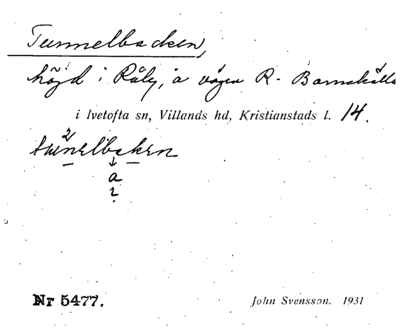 Tunnelbacken,
höjd i Råby, å vägen R - Barnakälla
i Ivetofta sn, Villands hd, Kristianstads l. 14.
2
tunelbaken
a
2
Nr 5477.
John Svensson. 1931